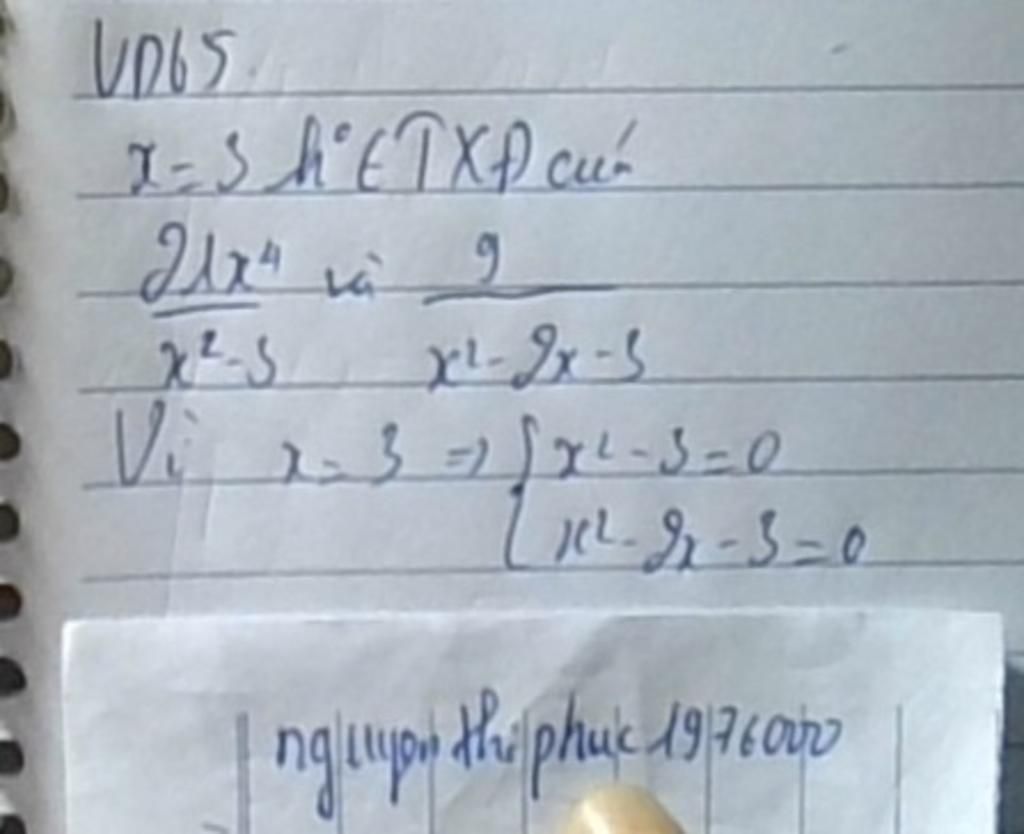 VD65.
x = 3 k° ∈ TXĐ của
21x⁴ và 9
x² - 3 x² - 2x - 3
Vì x = 3 => { x² - 3 = 0
x² - 2x - 3 = 0
nguyen thi phuc 1976000